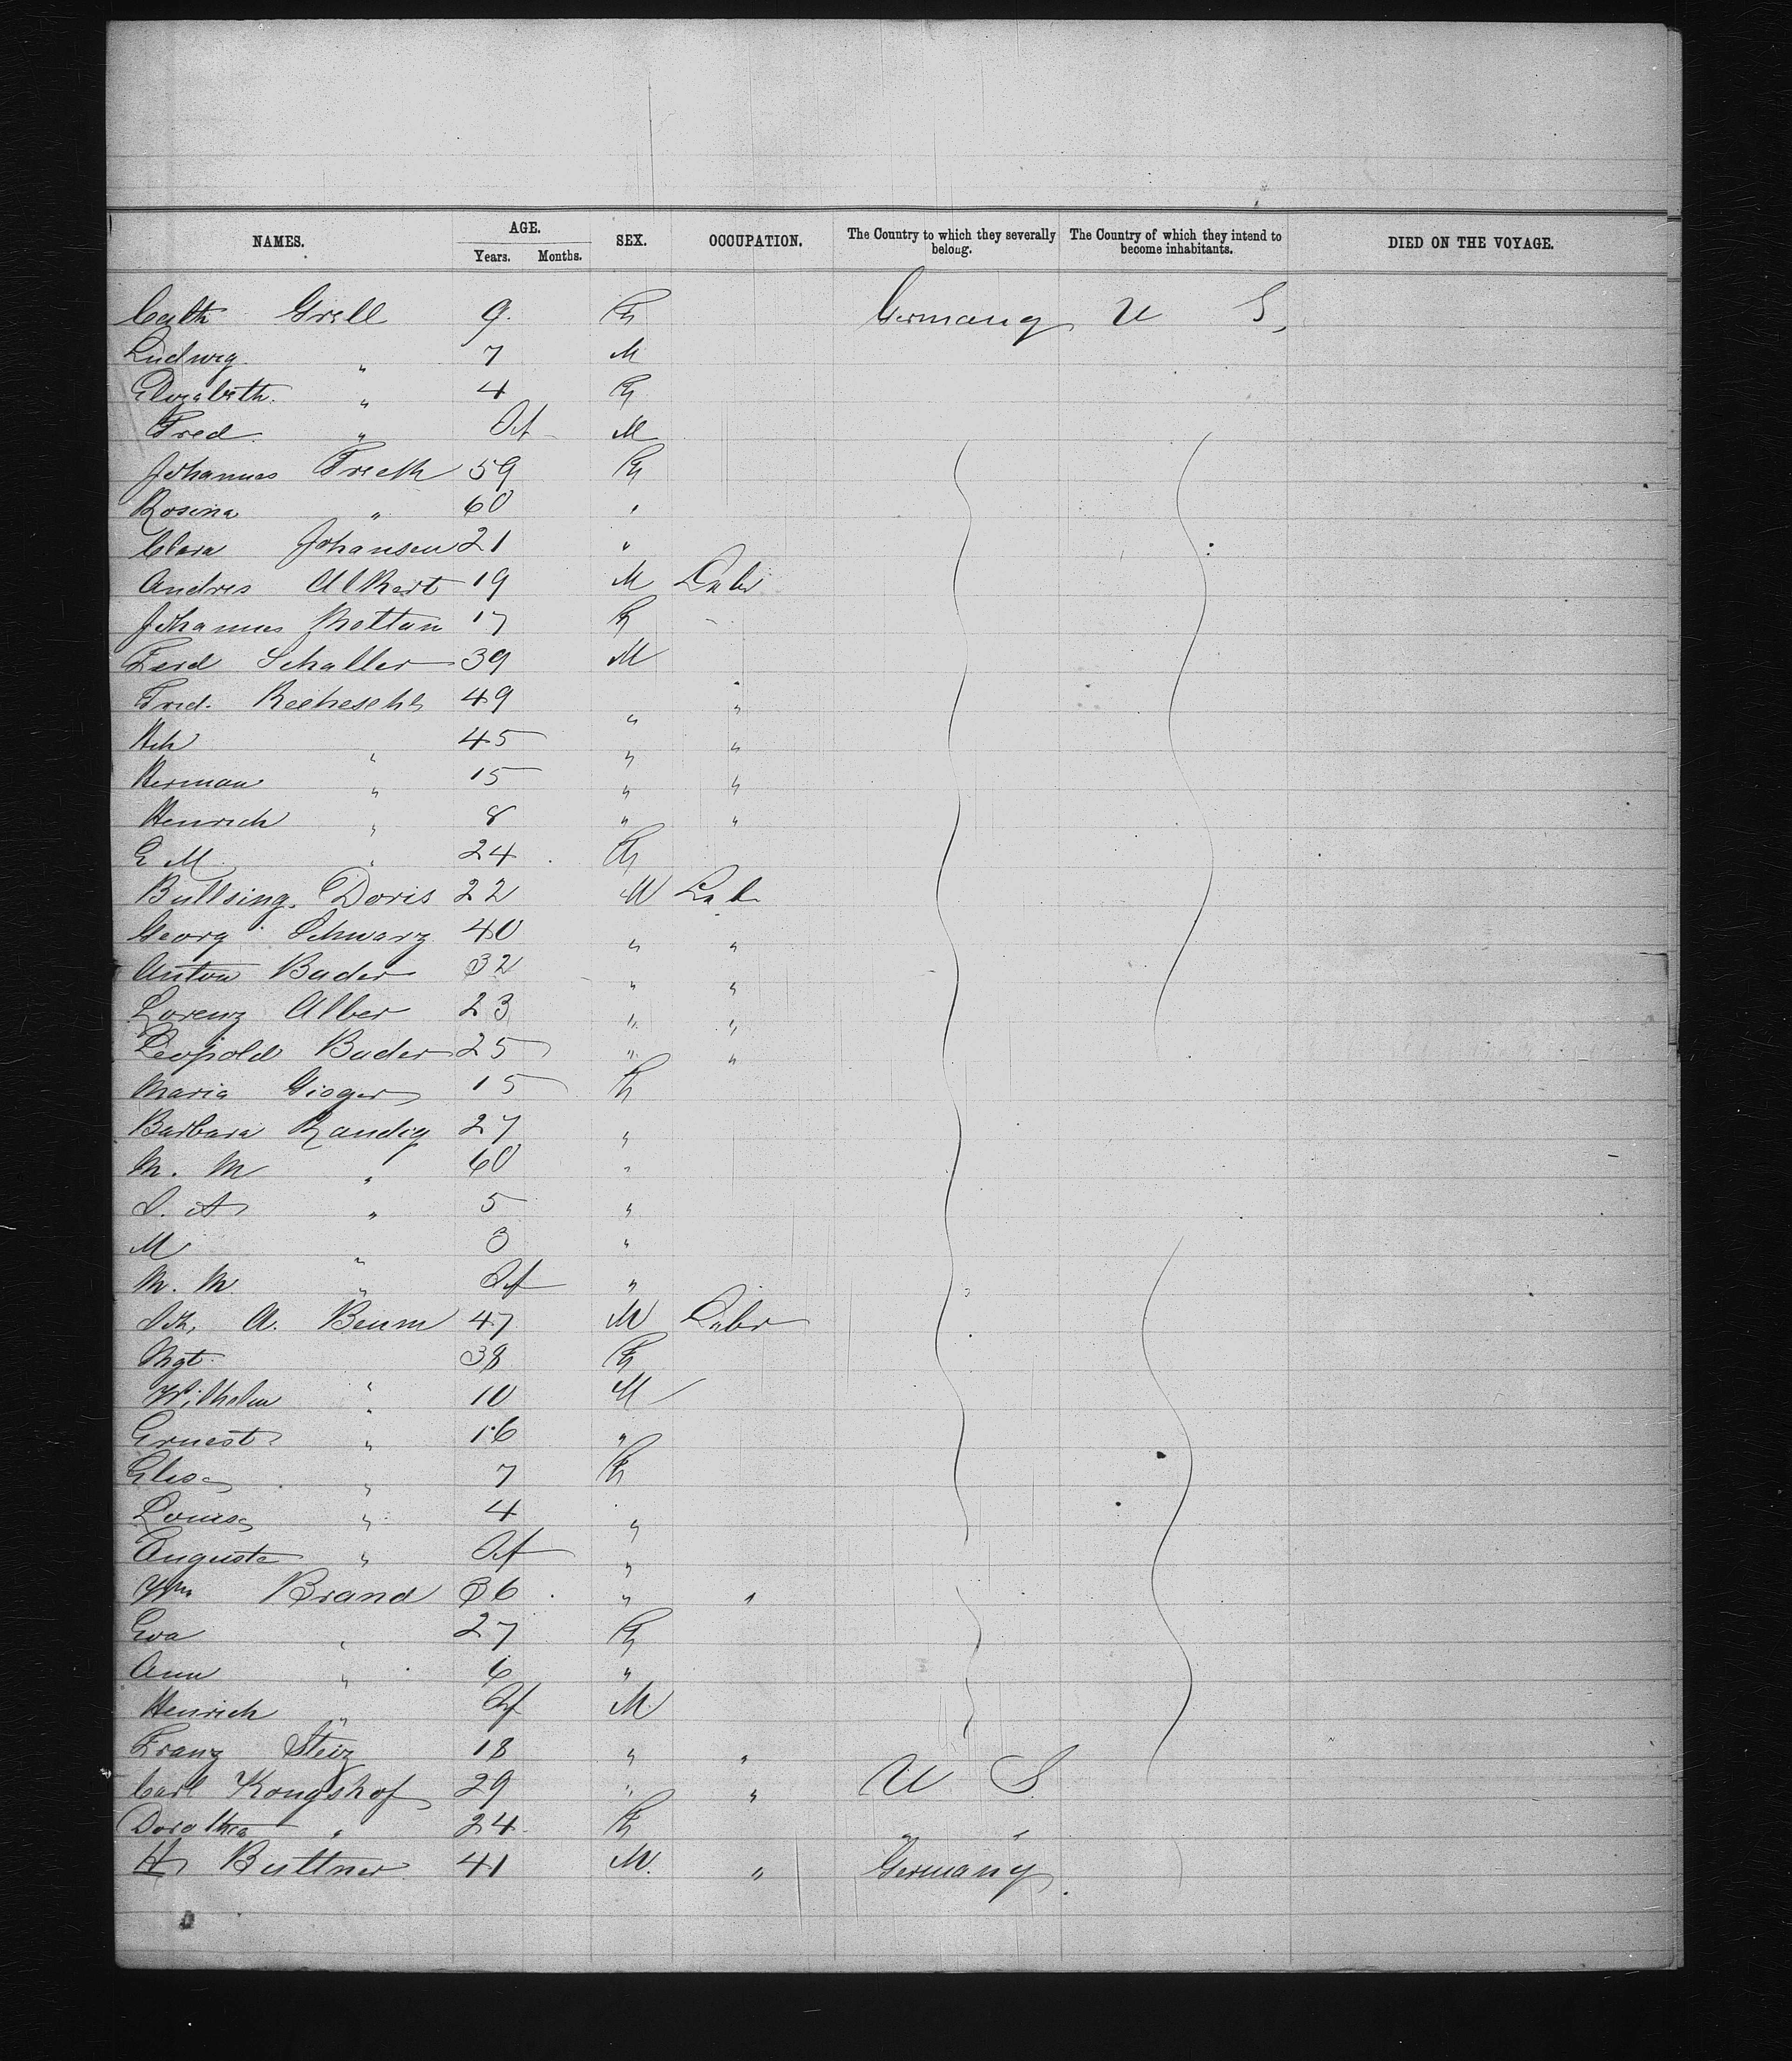 NAMES. AGE. SEX. OCCUPATION. The Country to which they severally belong. The Country of which they intend to become inhabitants. DIED ON THE VOYAGE.
Years. Months.
Cath Grell 9. F Germany U S,
Ludwig " 7 M
Elizabeth " 4 F
Fred " Inf M
Johannes 59 F
Rosina " 60 "
Clara Johansen 21 "
Andres Albert 19 M Labr
Johannes 17 F
Ferd Schaller 39 M
Fred. 49 " "
Hch " 45 " "
Herman " 15 " "
Henrich " 8 " "
E M " 24 F
Bullsing, Doris 22 M Lab
Georg Schwarz 40 " "
Anton Bader 32 " "
Lorenz Alber 23 " "
Leopold Bader 25 " "
Maria Gieger 15 F
Barbara Randig 27 "
M. M " 60 "
" 5 "
M " 3 "
M. M " Inf "
Joh, A. Beum 47 M Labr
Mgt " 38 F
Wilhelm " 10 M
Ernest " 16 "
Elisa " 7 F
Louisa " 4 "
Auguste " Inf "
Wm Brand 36 " "
Eva " 27 F
Ann " 6 "
Henrich " Inf M
Franz Steiz 18 " "
Carl Kongshof 29 " " U S.
Dorothea " 24 F " "
H Buttner 41 M. " Germany